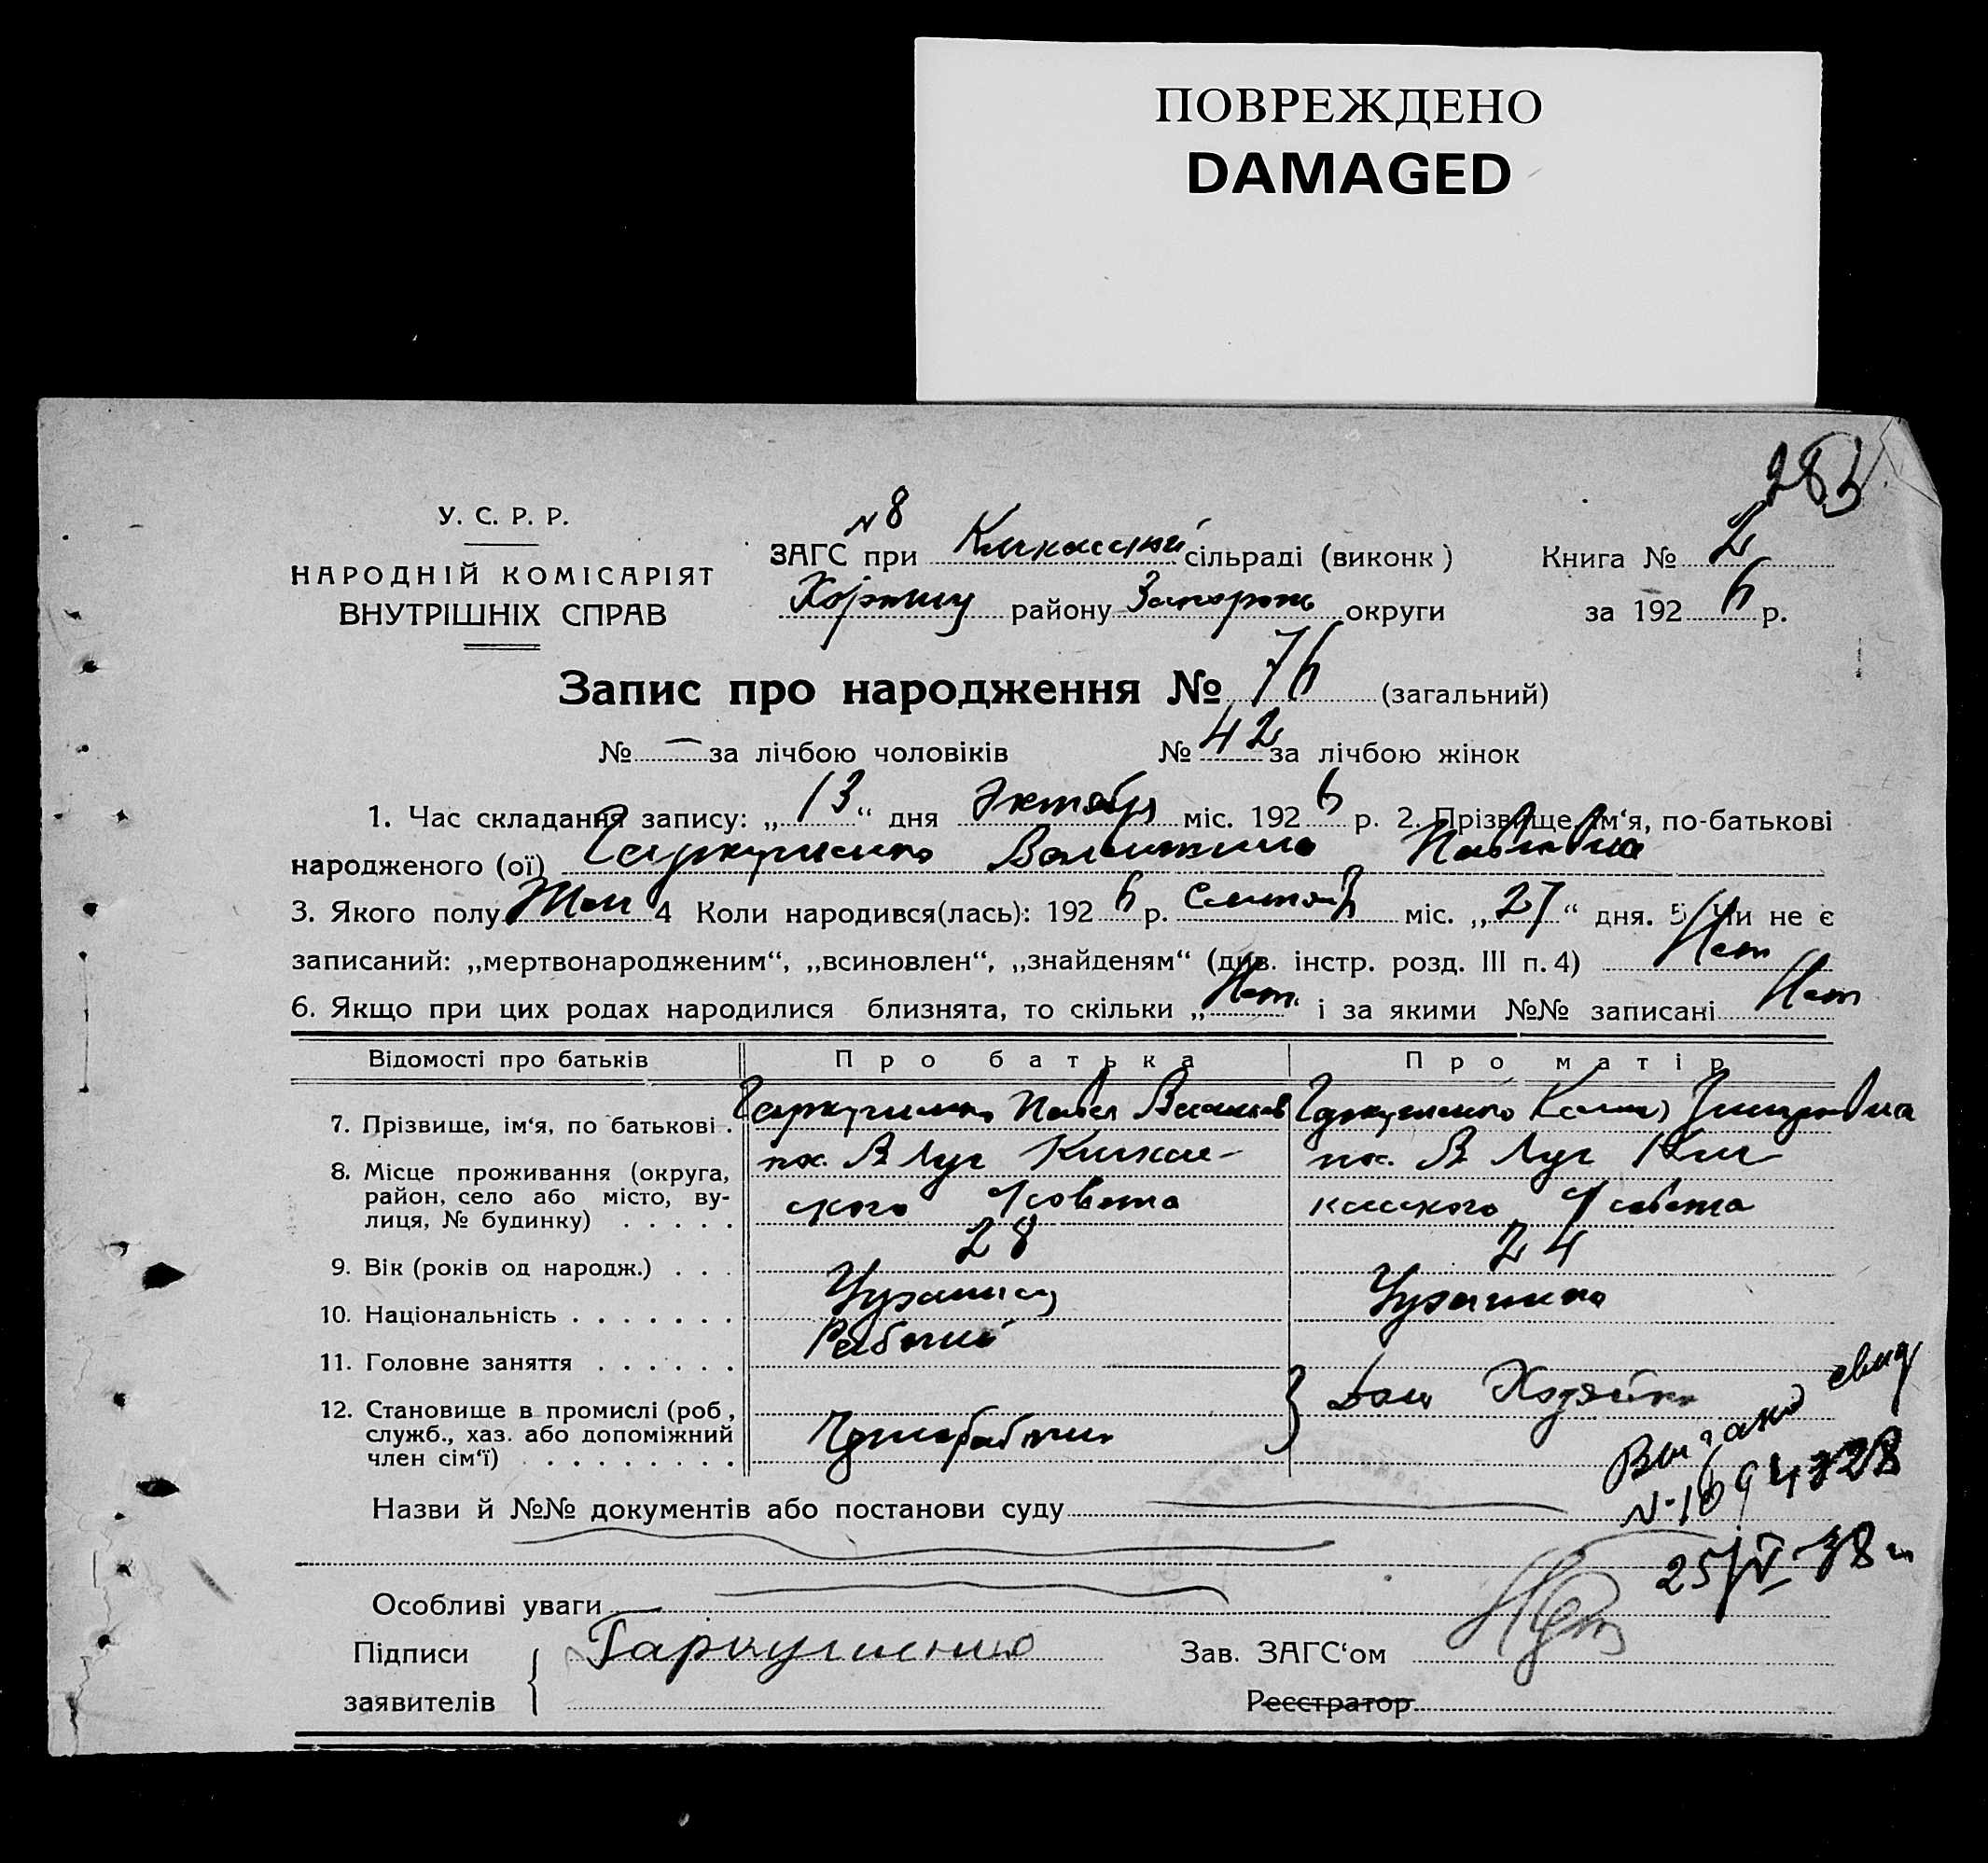 ПОВРЕЖДЕНО
DAMAGED
283
У. С. Р. Р.
НАРОДНІЙ КОМІСАРІЯТ
ВНУТРІШНІХ СПРАВ
N 8
ЗАГС при Кичкасской сільраді (виконк)
району Запорож округи
Книга № 2
за 1926 р.
Запис про народження № 76 (загальний)
№ — за лічбою чоловіків № 42 за лічбою жінок
1. Час складання запису: „13“ дня Октября міс. 1926 р. 2. Прізвище, ім‘я, по-батькові
народженого (ої) Гаркушенко Валентина Павловна
3. Якого полу Жен 4 Коли народився(лась): 1926 р. Сентяб міс. „27“ дня. 5. Чи не є
записаний: „мертвонародженим“, „всиновлен“, „знайденям“ (див. інстр. розд. III п. 4) Нет
6. Якщо при цих родах народилися близнята, то скільки „Нет“ і за якими №№ записані Нет
Відомості про батьків Про батька Про матір
7. Прізвище, ім‘я, по батькові . Гаркушенко Павел Гаркушенко
8. Місце проживання (округа, район, село або місто, вулиця, № будинку) . . . . .
пос. В Луг Кичкас-
ского С/совета
пос. В Луг Кич-
касского С/совета
9. Вік (років од народж.) . . . 28 24
10. Національність . . . . . . . Украинец Украинка
11. Головне заняття . . . . . . Рабочий
12. Становище в промислі (роб, служб., хаз. або допоміжний член сім‘ї) . . . . . . . . .
Чернорабочий
} Дом Хозяйка
Выдано свид
N-1694728
25/V-38 г
Назви й №№ документів або постанови суду
Особливі уваги
Підписи
заявителів
Гаркушенко
Зав. ЗАГС‘ом
Реєстратор